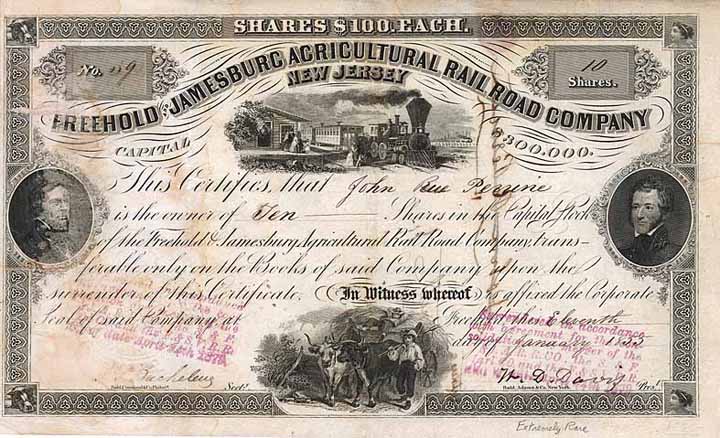 SHARES $100. EACH.
No. 59
10
Shares.
FREEHOLD & JAMESBURG AGRICULTURAL RAIL ROAD COMPANY
NEW JERSEY
CAPITAL 300.000.
This Certifies, that John Rue Perrine
is the owner of Ten Shares in the Capital Stock
of the Freehold & Jamesburg Agricultural Rail Road Company, trans-
ferable only on the Books of said Company upon the
surrender of this Certificate. In Witness whereof is affixed the Corporate
Seal of said Company at Freehold the Eleventh
day of January 18
accordance
agreement
Sect. W. D. Davis Prest.
Dodd, New York.
Extremely Rare